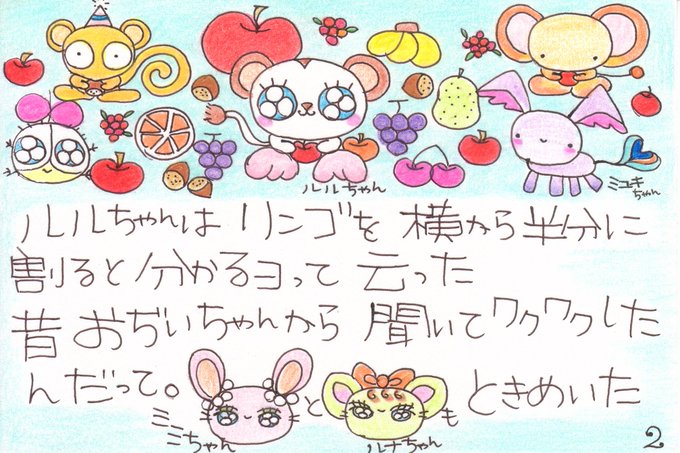 ルルちゃん
ミユキちゃん
ルルちゃんは リンゴを 横から半分に
割ると分かるヨって 云った
昔 おぢいちゃんから 聞いてワクワクした
んだって。
ミミちゃん と ルナちゃん も ときめいた
2